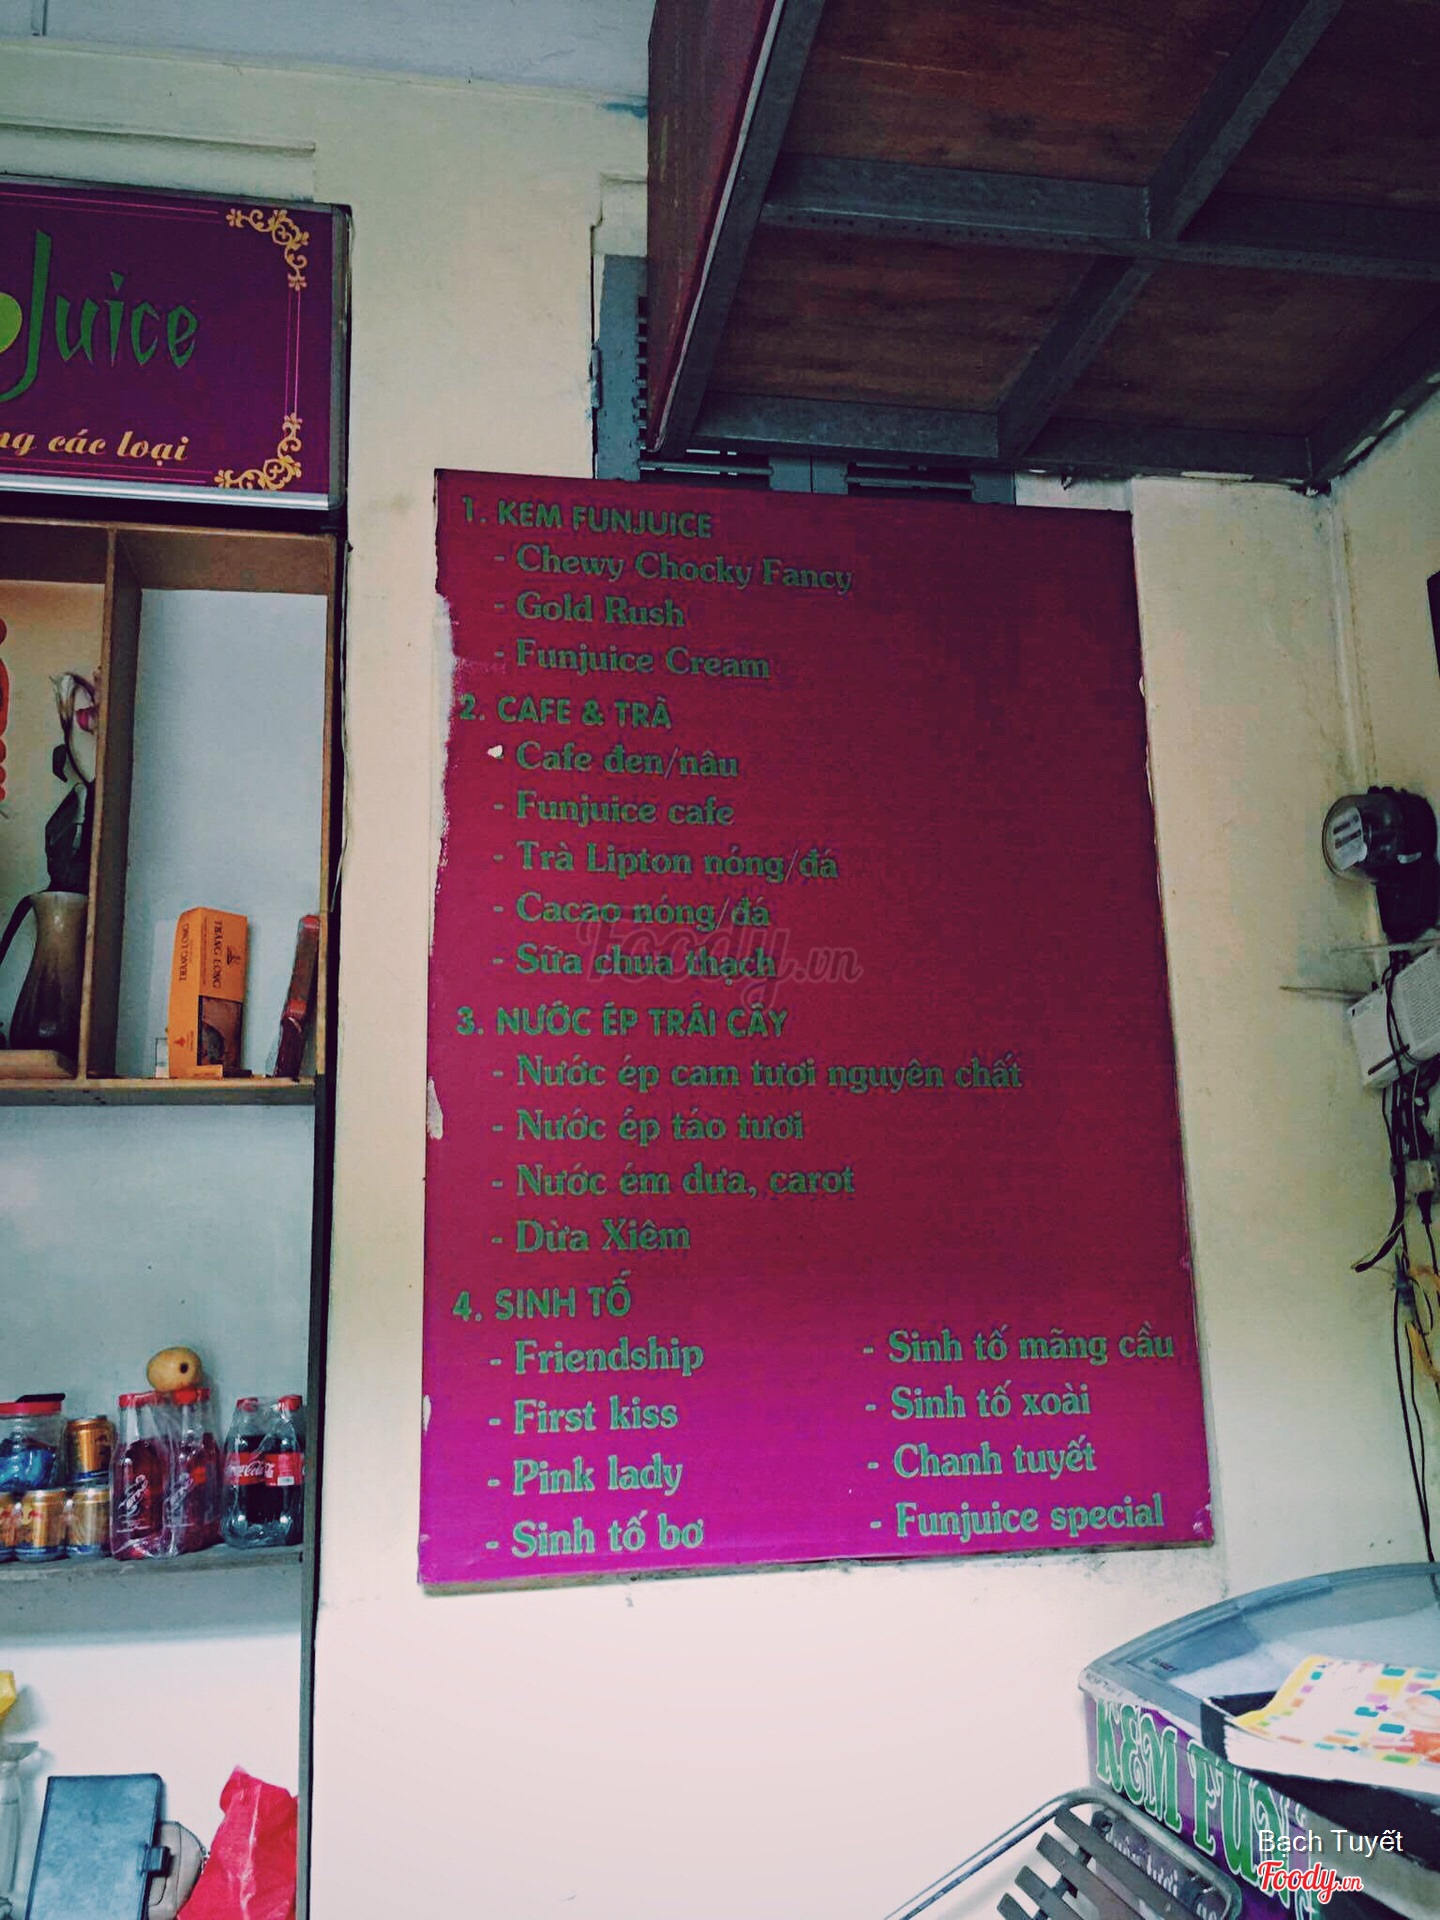 Juice
ng các loại
1. KEM FUNJUICE
- Chewy Chocky Fancy
- Gold Rush
- Funjuice Cream
2. CAFE & TRÀ
Cafe đen/nâu
- Funjuice cafe
- Trà Lipton nóng/đá
- Cacao nóng/đá
- Sữa chua thạch
3. NƯỚC ÉP TRÁI CÂY
- Nước ép cam tươi nguyên chất
- Nước ép táo tươi
- Nước ém dưa, carot
- Dừa Xiêm
4. SINH TỐ
- Friendship
- First kiss
- Pink lady
- Sinh tố bơ
- Sinh tố mãng cầu
- Sinh tố xoài
- Chanh tuyết
- Funjuice special
Foody.vn
THĂNG LONG
Coca-Cola
KEM FUN
Bạch Tuyết
Foody.vn